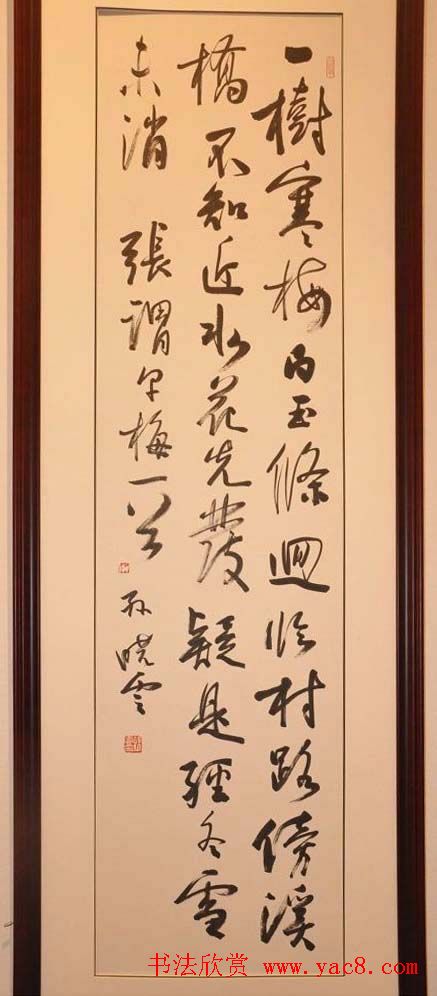 一樹寒梅白玉條迥臨村路傍溪
橋不知近水花先發疑是經冬雪
未消 張謂早梅一首 孫曉雲
书法欣赏 www.yac8.com